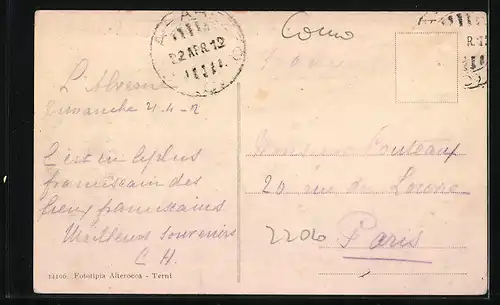 Como
22 APR. 12
R. 12
L'Alverne
Dimanche 21-4-12
C'est un le plus
franciscain des
lieux franciscains
Meilleurs souvenirs
C H.
Monsieur Pouteaux
20 rue de
2206 Paris
14106. Fototipia Alterocca - Terni